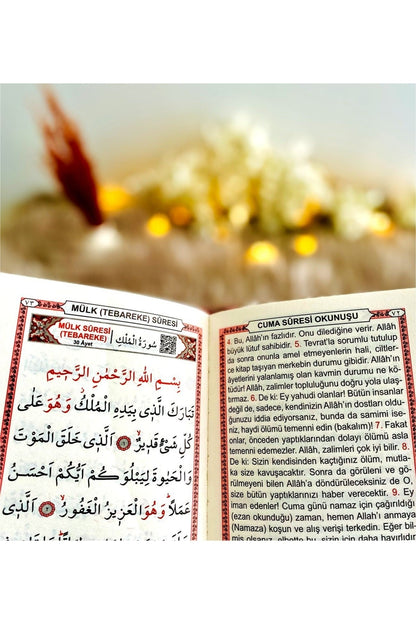 ٧٣
MÜLK (TEBAREKE) SÛRESİ
MÜLK SÛRESİ
(TEBAREKE)
30 Ayet
سُورَةُ الْمُلْكِ
بِسْمِ اللّٰهِ الرَّحْمٰنِ الرَّحٖيمِ
تَبَارَكَ الَّذٖي بِيَدِهِ الْمُلْكُ وَهُوَ عَلٰى
كُلِّ شَيْءٍ قَدٖيرٌ ۙ ١ اَلَّذٖي خَلَقَ الْمَوْتَ
وَالْحَيٰوةَ لِيَبْلُوَكُمْ اَيُّكُمْ اَحْسَنُ
عَمَلًا وَهُوَ الْعَزٖيزُ الْغَفُورُ ۙ ٢ اَلَّذٖي
٧٢
CUMA SÛRESİ OKUNUŞU
4. Bu, Allâh'ın fazlıdır. Onu dilediğine verir. Allâh
büyük lütuf sahibidir. 5. Tevrat'la sorumlu tutulup
da sonra onunla amel etmeyenlerin hali, ciltler-
ce kitap taşıyan merkebin durumu gibidir. Allâh'ın
âyetlerini yalanlamış olan kavmin durumu ne kö-
tüdür! Allâh, zalimler topluluğunu doğru yola ulaş-
tırmaz. 6. De ki: Ey yahudi olanlar! Bütün insanlar
değil de, sadece, kendinizin Allâh'ın dostları oldu-
ğunuzu iddia ediyorsanız, bunda da samimi ise-
niz, haydi ölümü temenni edin (bakalım)! 7. Fakat
onlar, önceden yaptıklarından dolayı ölümü asla
temenni edemezler. Allâh, zalimleri çok iyi bilir. 8.
De ki: Sizin kendisinden kaçtığınız ölüm, mutla-
ka size kavuşacaktır. Sonra da görüleni ve gö-
rülmeyeni bilen Allâh'a döndürüleceksiniz de O,
size bütün yaptıklarınızı haber verecektir. 9. Ey
iman edenler! Cuma günü namaz için çağrıldığı
(ezan okunduğu) zaman, hemen Allah'ı anmaya
(Namaza) koşun ve alış verişi terkedin. Eğer bilir-